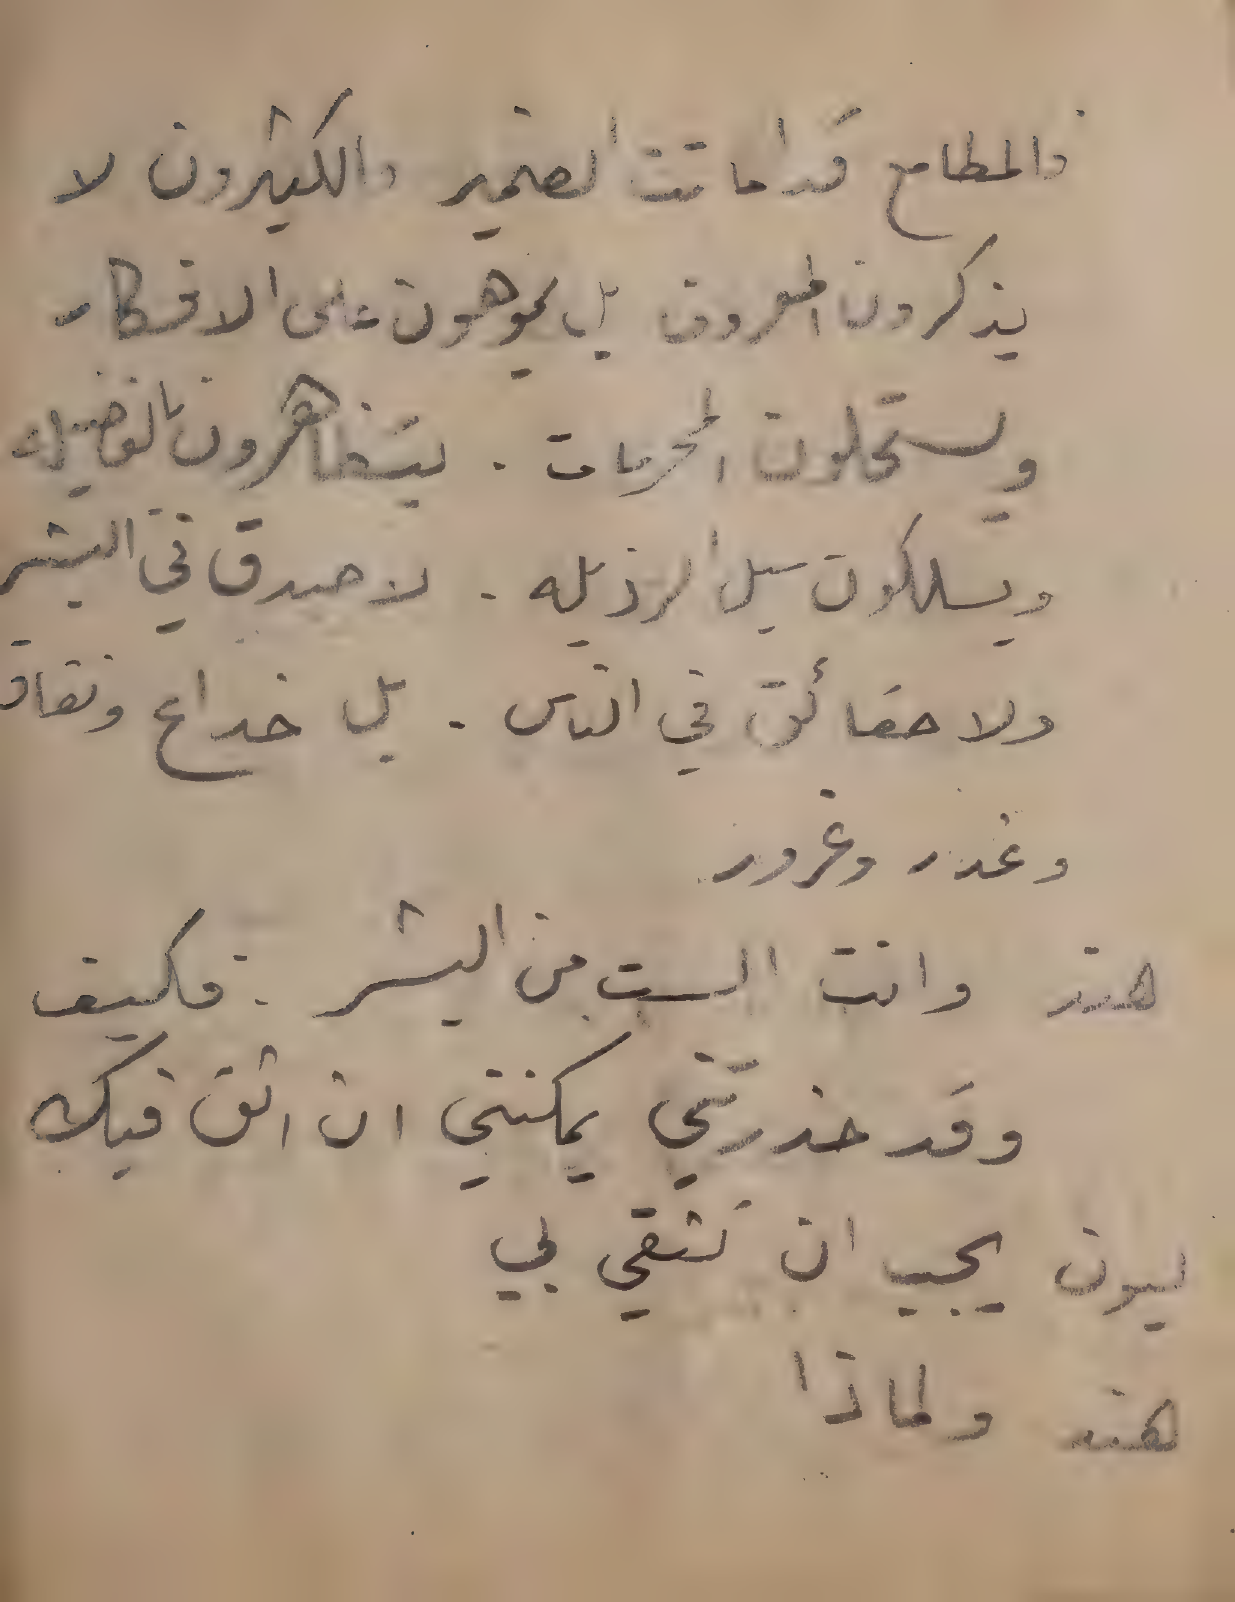 فالمطامع قد اماتت الضمير والكثيرون لا
يذكرون المعروف بل يموهون على الافكار
ويستحلون المحرمات . يتظاهرون بالفضيله
ويسلكون سبل الرذيله . لا صدق في البشر
ولا حقائق في الناس . بل خداع ونفاق
وغدر وغرور
هند وانت الست من البشر . فكيف
وقد حذرتني يمكنني ان اثق فيك
ليون يجب ان تثقي بي
هند ولماذا